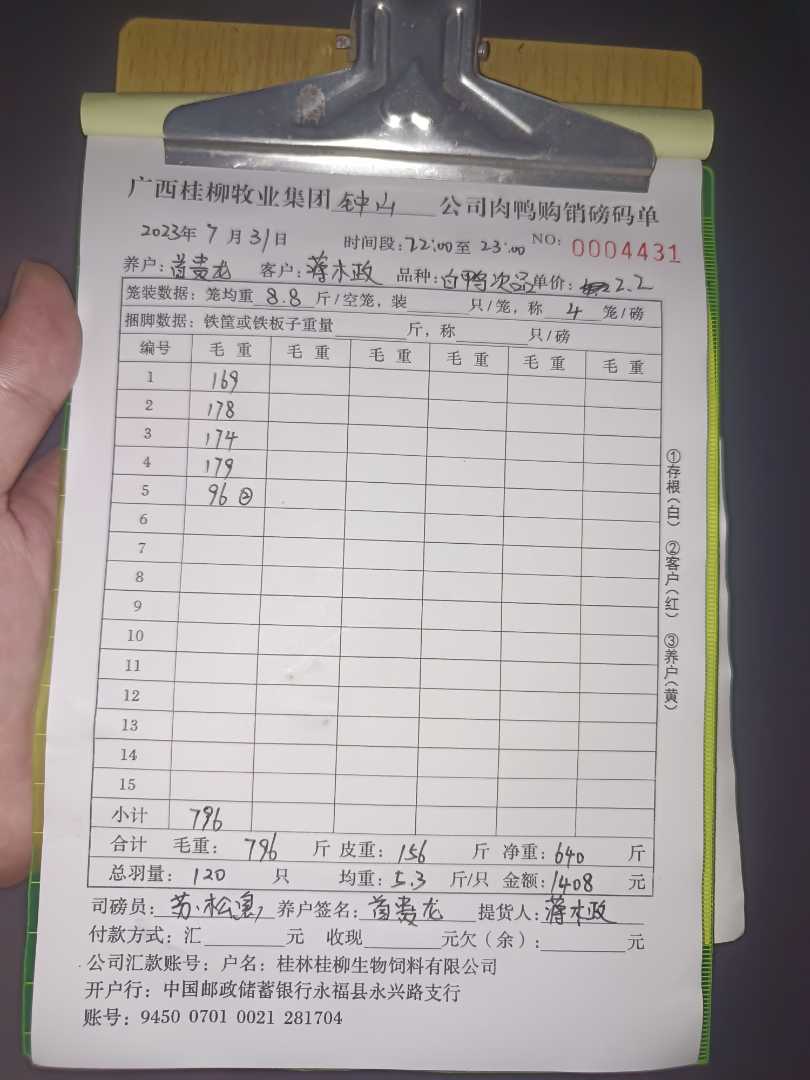 广西桂柳牧业集团钟山公司肉鸭购销磅码单
2023年7月31日 时间段:22:00至23:00 NO: 0004431
养户:首贵龙 客户:蒋木政 品种:白鸭次品 单价:2.2
笼装数据:笼均重8.8斤/空笼,装____只/笼,称4笼/磅
捆脚数据:铁筐或铁板子重量____斤,称____只/磅
编号 毛重 毛重 毛重 毛重 毛重 毛重
1 169
2 178
3 174
4 179
5 96②
6
7
8
9
10
11
12
13
14
15
小计 796
合计 毛重:796斤 皮重:156斤 净重:640斤
总羽量:120只 均重:5.3斤/只 金额:1408元
司磅员:苏松 养户签名:首贵龙 提货人:蒋木政
付款方式:汇____元 收现____元欠(余):____元
公司汇款账号:户名:桂林桂柳生物饲料有限公司
开户行:中国邮政储蓄银行永福县永兴路支行
账号:9450 0701 0021 281704
①存根(白) ②客户(红) ③养户(黄)